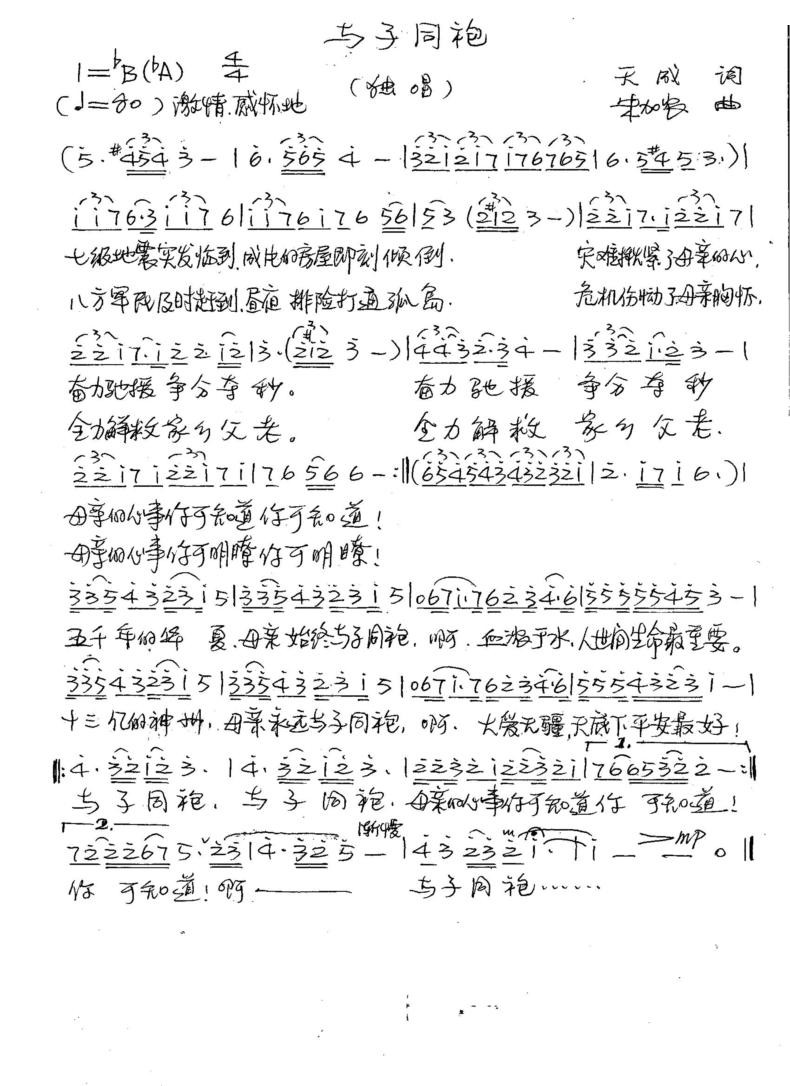 与子同袍
1=♭B(♭A) 4/4
(独唱)
天成 词
(♩=80)激情.感怀地
朱加农 曲
(5·#454 3 - | 6·565 4 - | 321217 176765 | 6·5#45 3·)|
1176·3 1176 | 117617656 | 53 (2#12 3 -) | 2217·12217 |
七级地震突发临到,成片的房屋即刻倾倒. 灾难揪紧了母亲的心,
八方军民及时赶到,昼夜排险打通孤岛. 危机伤恸了母亲胸怀,
2217·12212 | 3·(2#12 3 -) | 4432·34 - | 3321·23 - |
奋力驰援争分夺秒。 奋力驰援 争分夺秒
全力解救家乡父老。 全力解救 家乡父老.
2217122171 | 76566 - :‖ (654543432321 | 2·1716·)|
母亲的心事你可知道你可知道!
母亲的心事你可明瞭你可明瞭!
335432315 | 335432315 | 0671·76234·6 | 55555453 - |
五千年的华夏.母亲始终与子同袍,啊.血浓于水,人世间生命最重要。
335432315 | 335432315 | 0671·76234·6 | 55543231 - |
十三亿的神州,母亲永远与子同袍,啊.大爱无疆,天底下平安最好!
1.
‖: 4·32123· | 4·32123· | 2232122321 | 7665322 - :‖
与子同袍,与子同袍.母亲的心事你可知道你 可知道!
2. 渐慢
7222675·23 | 4·325 - | 43232 1·11 - - 0 ‖ mp
你 可知道!啊——— 与子同袍……